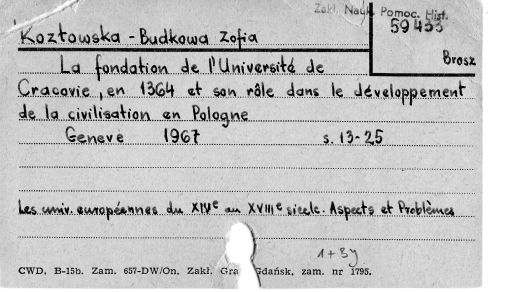 Zakł. Nauk Pomoc. Hist.
59433
Kozłowska - Budkowa Zofia
Brosz
La fondation de l'Université de
Cracovie, en 1364 et son rôle dans le développement
de la civilisation en Pologne
Geneve 1967 s. 13-25
Les univ. européennes du XIVe au XVIIIe siecle. Aspects et Problèmes
1+By
CWD, B-15b. Zam. 657-DW/On. Zakł. Gdańsk, zam. nr 1795.